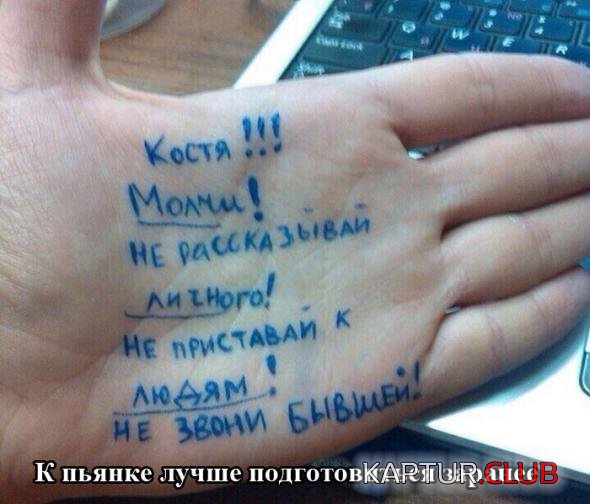 Костя !!!
Молчи!
НЕ РАССКАЗЫВАЙ
ЛИЧНОГО!
НЕ ПРИСТАВАЙ К
ЛЮДЯМ!
НЕ ЗВОНИ БЫВШЕЙ!
К пьянке лучше подготовиться заранее
KAPTUR.CLUB